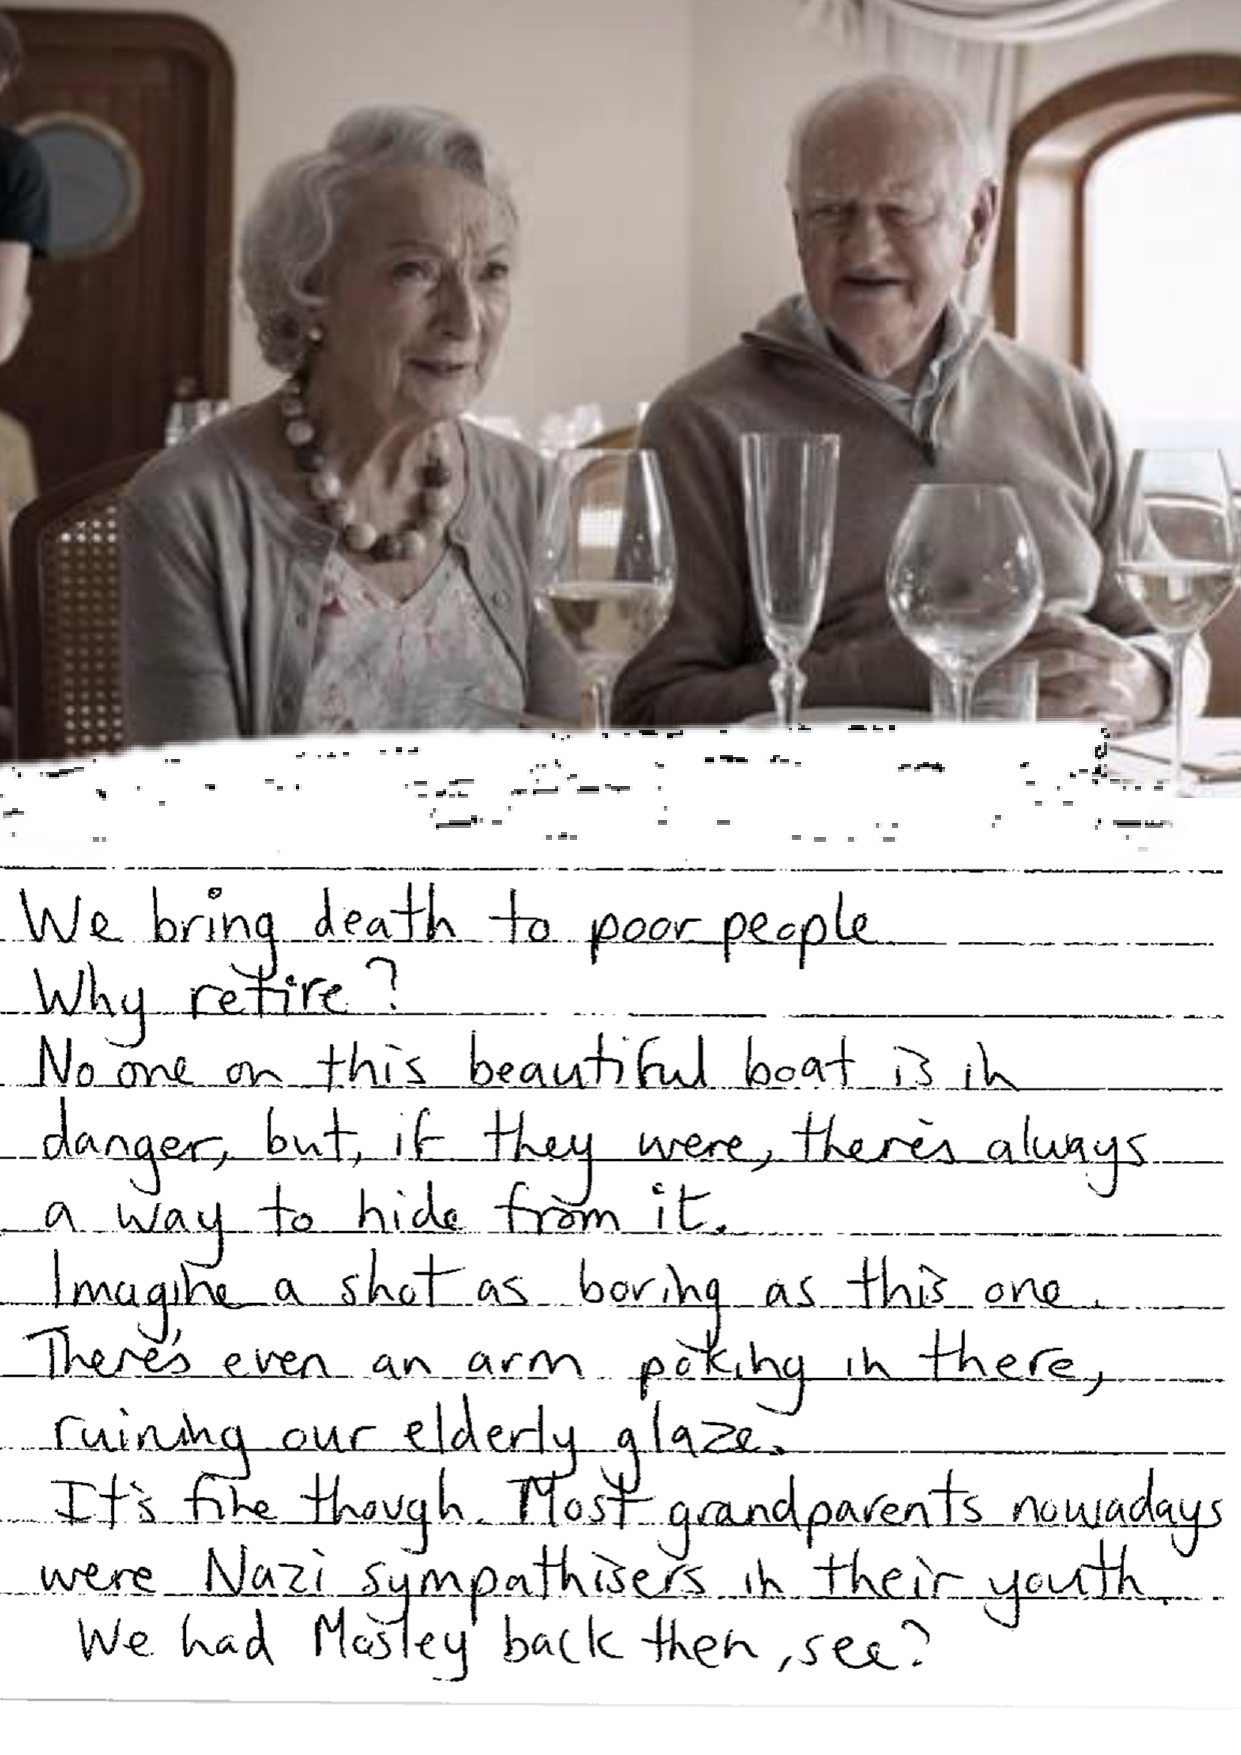 We bring death to poor people
Why retire?
No one on this beautiful boat is in
danger, but, if they were, there's always
a way to hide from it.
Imagine a shot as boring as this one.
There's even an arm poking in there,
ruining our elderly glaze.
It's fine though. Most grandparents nowadays
were Nazi sympathisers in their youth.
We had Mosley back then, see?